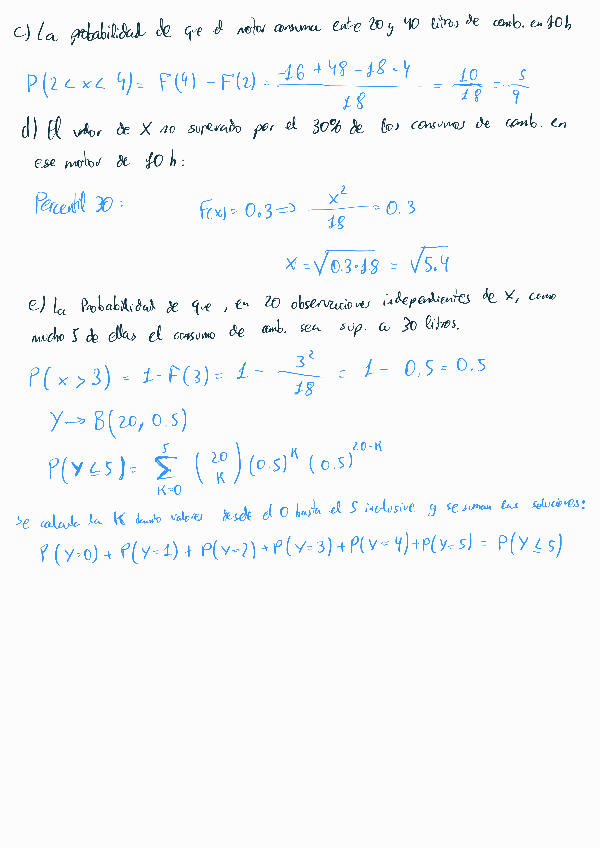 c) La probabilidad de que el motor consuma entre 20 y 40 litros de comb. en 10h
P(2 < x < 4) = F(4) - F(2) = (-16 + 48 - 18 - 4)/18 = 10/18 = 5/9
d) El valor de X no superado por el 30% de los consumos de comb. en
ese motor de 10 h:
Percentil 30: F(x) = 0.3 => x²/18 = 0.3
x = √(0.3·18) = √5.4
e) La Probabilidad de que, en 20 observaciones independientes de X, como
mucho 5 de ellas el consumo de comb. sea sup. a 30 litros.
P(x > 3) = 1 - F(3) = 1 - 3²/18 = 1 - 0.5 = 0.5
Y → B(20, 0.5)
P(Y ≤ 5) = ∑_{K=0}^{5} (20 K) (0.5)^K (0.5)^{20-K}
se calcula la K dando valores desde el 0 hasta el 5 inclusive y se suman las soluciones:
P(Y=0) + P(Y=1) + P(Y=2) + P(Y=3) + P(Y=4) + P(Y=5) = P(Y ≤ 5)